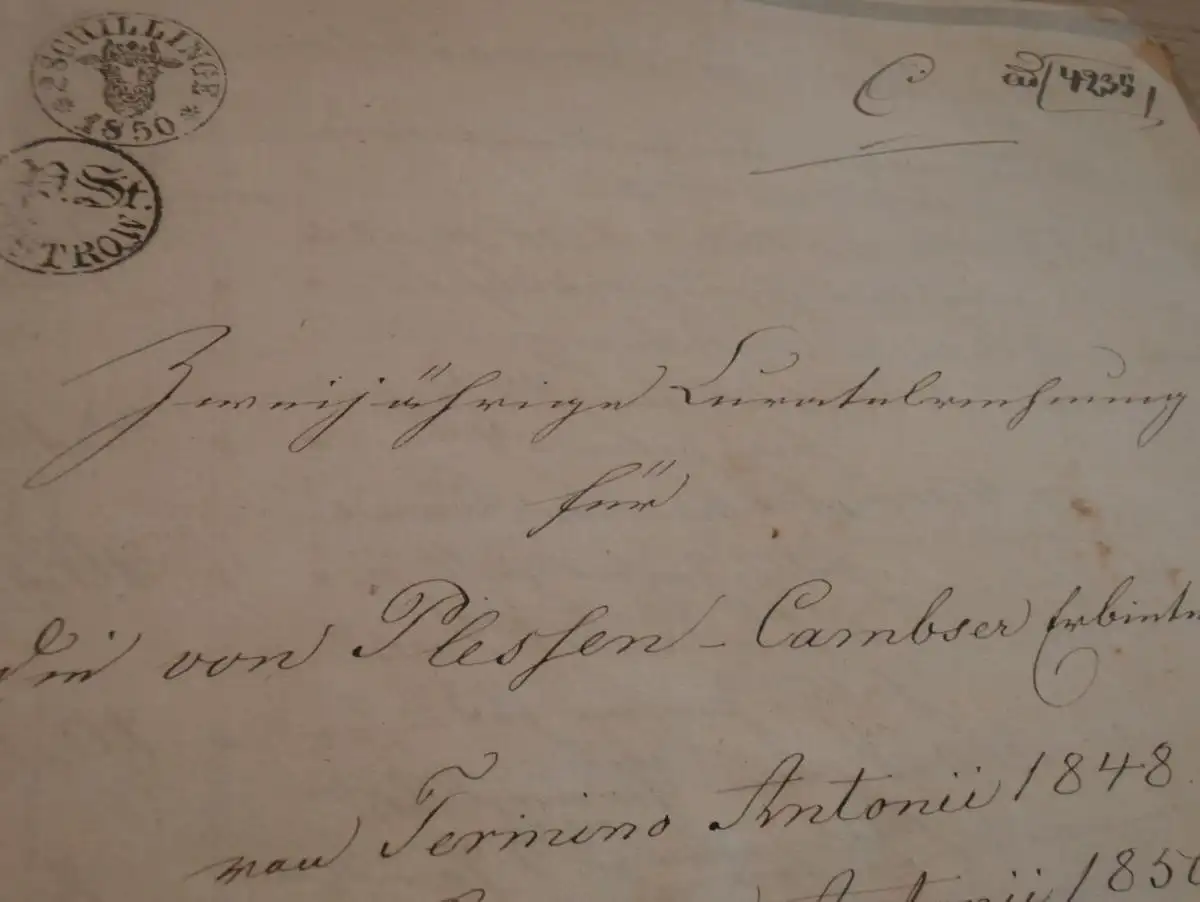 2 SCHILLINGE
1850
C
ad 4235
St.
TROW
Zweijährige Curatelrechnung
für
die von Plessen-Cambser
von Termino Antonii 1848
Antonii 1850